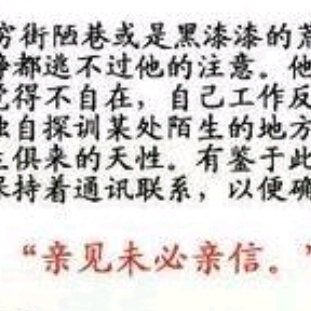 穷街陋巷或是黑漆漆的荒
静都逃不过他的注意。他
觉得不自在，自己工作反
独自探训某处陌生的地方
生俱来的天性。有鉴于此
保持着通讯联系，以便确
“亲见未必亲信。”